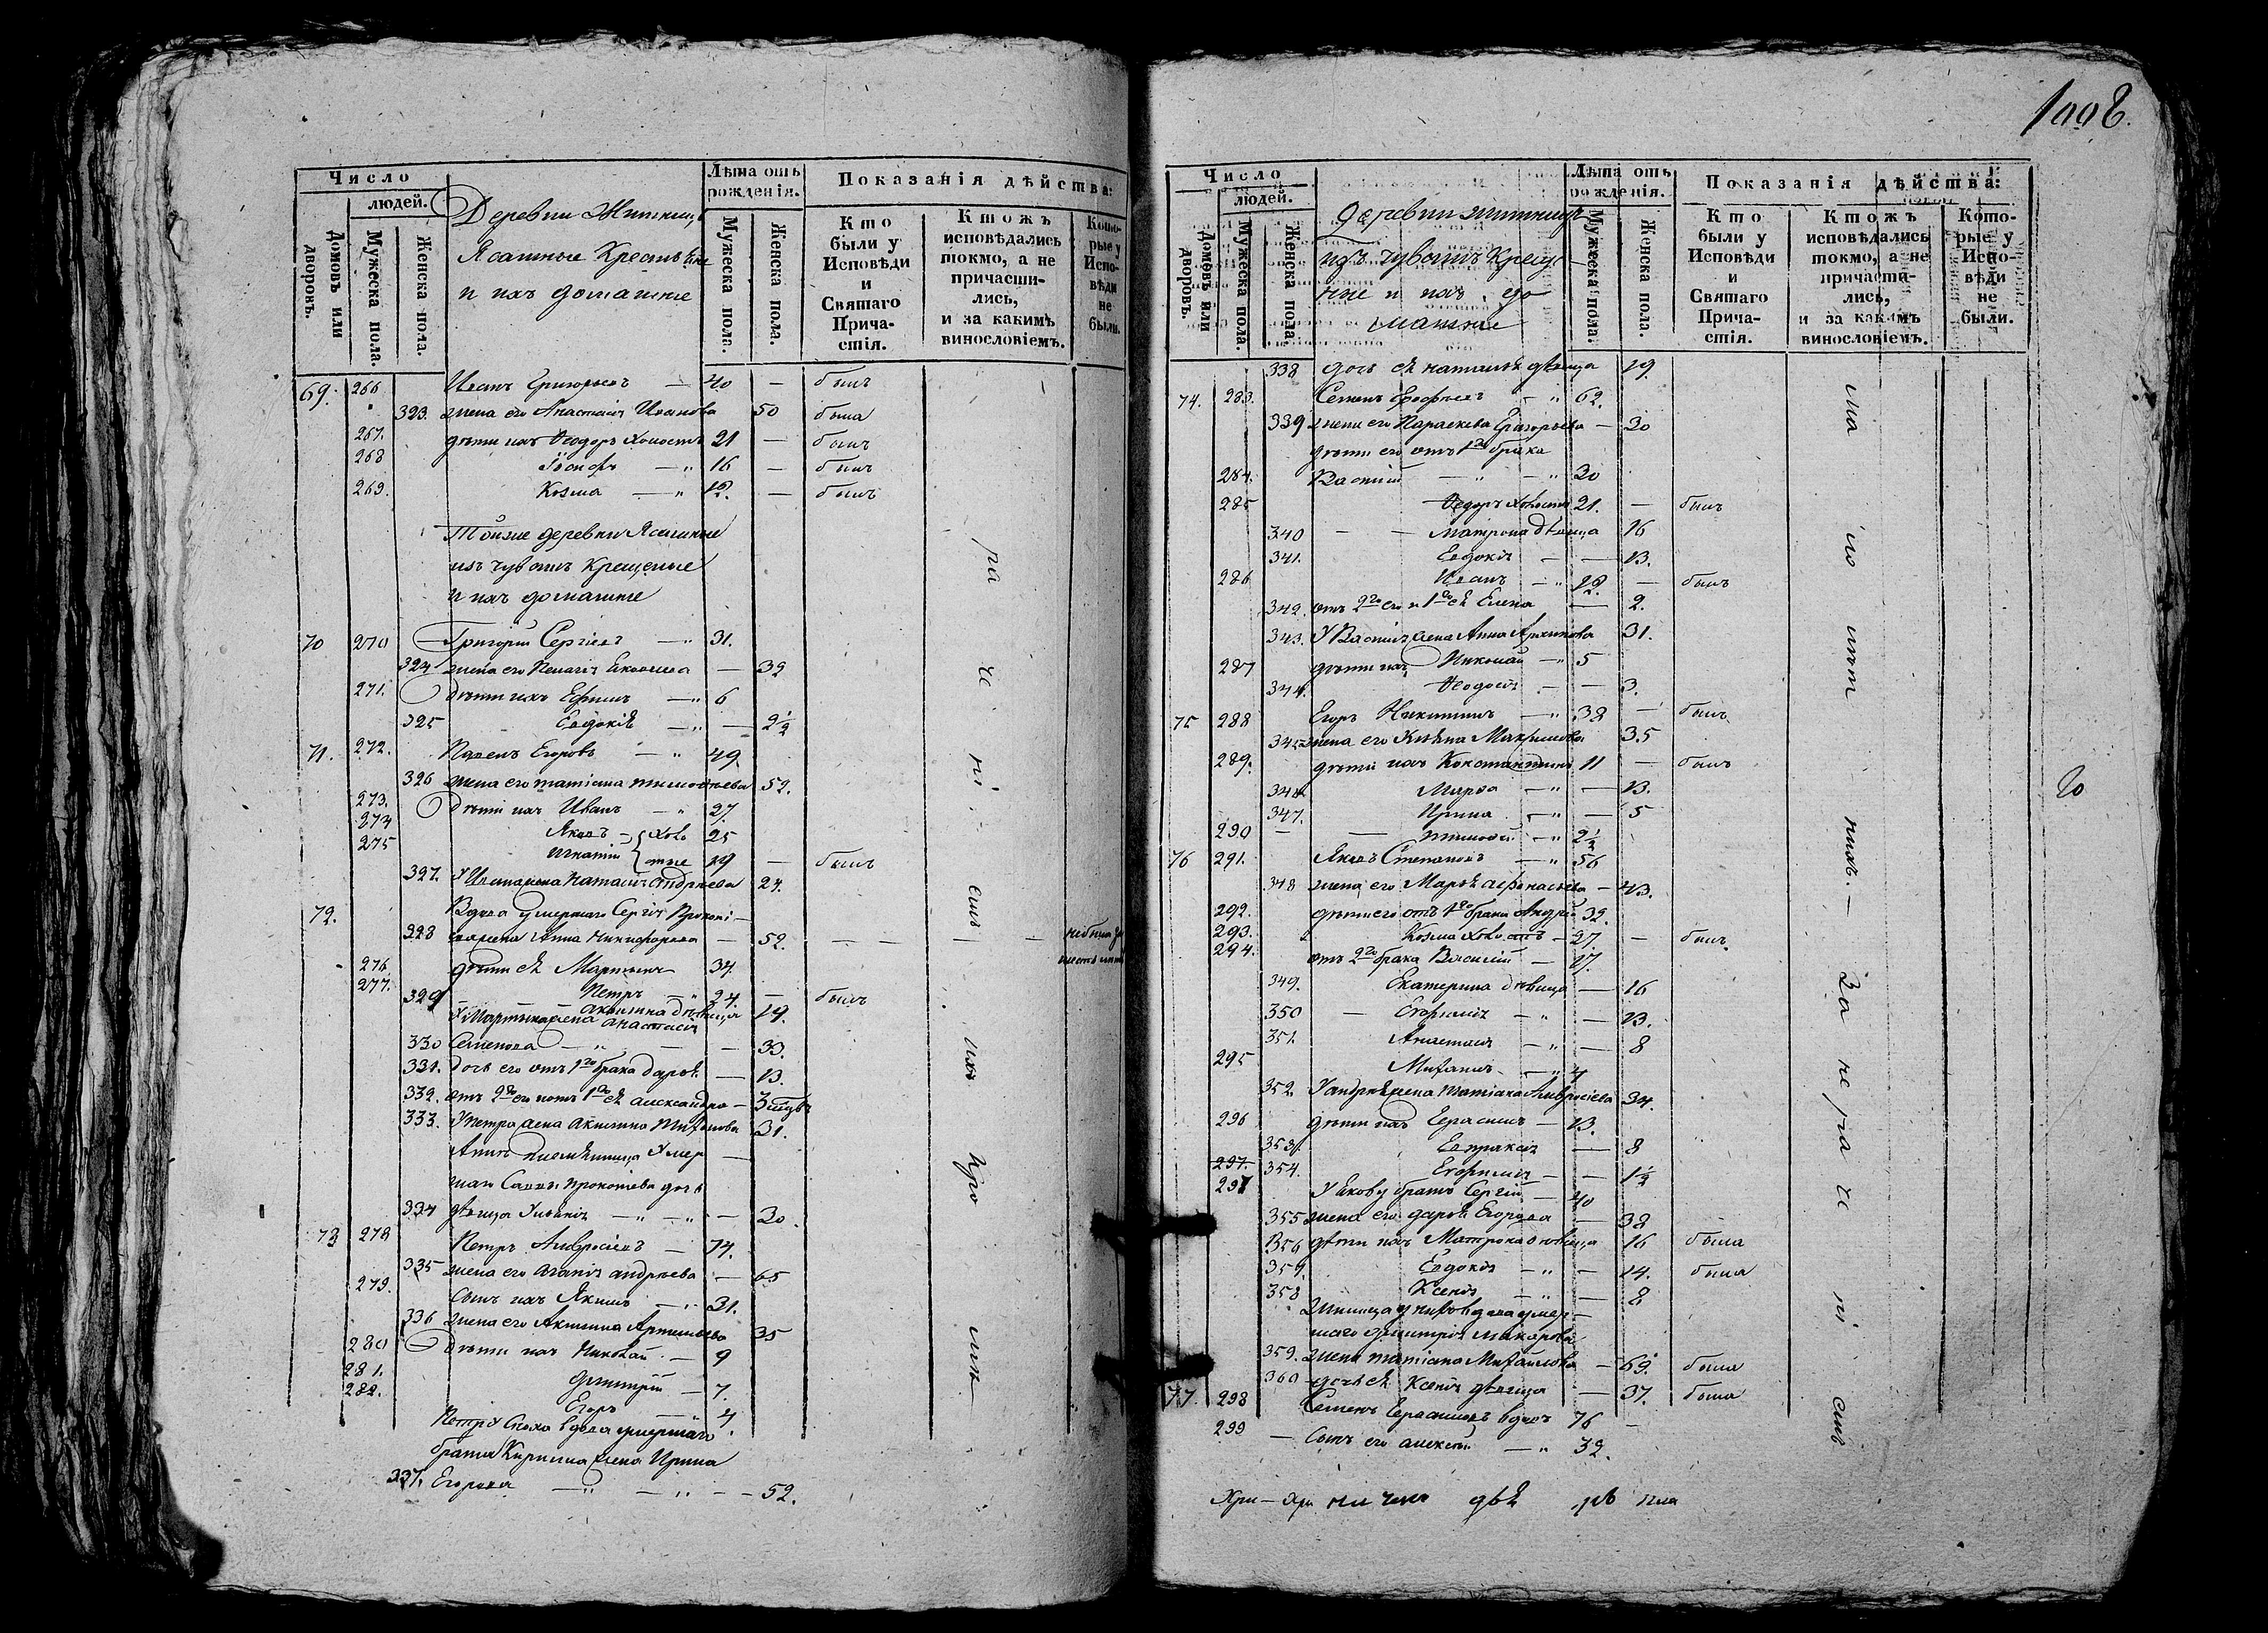 Число
людей.
Домовъ или дворовъ.
Мужеска пола.
Женска пола.
Деревни Житниц
Ясашные Крестьяне
и ихъ домашніе
Лѣта отъ рожденія.
Мужеска пола.
Женска пола.
Показанія дѣйства:
Кто были у Исповѣди и Святаго Причастія.
Ктожъ исповѣдались токмо, а не причастились, и за какимъ винословіемъ.
Которые у Исповѣди не были.
69. 266 Иванъ Григорьевъ — 40 — былъ
323. жена его Анастасія Иванова 50 была
267. дѣти ихъ Ѳеодоръ холостъ 21 — былъ
268 Іосифъ — 16 — былъ
269. Козма — 12. — былъ
Тойже деревни Ясашные
изъ чувашъ Крещеные
и ихъ домашніе
70 270 Григорій Сергіевъ — 31.
324 жена его Пелагія Яковлева — 32
271. дѣти ихъ Ефимъ — 6
325 Евдокія — — 2½
71. 272. Павелъ Егоровъ — 49
326 жена его Татіана Тимоѳеева 52.
273. дѣти ихъ Иванъ — 27.
274 Яковъ — холо 25
275 Игнатій стые 19 — былъ
327. У Ивана жена Наталія Андреева 24.
72. Вдова умершаго Сергія Прокопі—
328 жена Анна Никифорова — 52. — — — не была за
276 дѣти ея Мартынъ 34.
277. Петръ — 24. — былъ
329 Акилина дѣвица 19.
У Мартына жена Анастасія
330 Семенова — — — 33.
331. дочь его отъ 1го брака Дарья — 13.
332. отъ 2го его и отъ 1го ея Александра — 3
333. У Петра жена Акилина Михайлова 31.
Аннѣ племянница умер—
шаго Саввы Прокопьева дочь
334 дѣвица Ульянія — — — 30.
73 278 Петръ Амвросіевъ — 74.
335 жена его Агапія Андреева — 65
279. Сынъ ихъ Якимъ — 31.
336 жена его Акилина Артемьева 35
280 дѣти ихъ Николай — 9
281. Дмитрій — 7.
282. Егоръ — 4.
Петра сноха вдова умершаго
брата Кирилла жена Ирина
337. Егорова — — — 52.
ра че ні емъ ихъ кро мѣ
1008.
Число
людей.
Домовъ или дворовъ.
Мужеска пола.
Женска пола.
Деревни Житницъ
изъ чувашъ Креще
ные и ихъ до
машніе
Лѣта отъ рожденія.
Мужеска пола.
Женска пола.
Показанія дѣйства:
Кто были у Исповѣди и Святаго Причастія.
Ктожъ исповѣдались токмо, а не причастились, и за какимъ винословіемъ.
Которые у Исповѣди не были.
338 дочь ея Наталья дѣвица 19.
74. 283. Семенъ Ерофеевъ — 62.
339 жена его Параскева Григорьева — 30
дѣти его отъ 1го брака
284. Василій — — 30
285 Ѳедоръ холостъ 21. — былъ
340 — — Матрона дѣвица 16
341. Евдокія — — 13.
286 Иванъ — 12. — былъ
342. отъ 2го его и 1го ея Елена — 2.
343. У Василія жена Анна Архипова 31.
287 дѣти ихъ Николай — 5
344. Ѳеодосія — — 3.
75 288 Егоръ Никитинъ — 38 — былъ
345 жена его Ульяна Максимова 35
289. дѣти ихъ Константинъ 11 — былъ
346 Марѳа — — 13.
347. Ирина — — 5
290 — — Тимоѳей — 2½
76 291. Яковъ Степановъ — 56
348 жена его Марья Афонасьева — 43.
292. дѣти его отъ 1го брака Андрей 32.
293. Козма холостъ — 27. — былъ
294. отъ 2го брака Василій — 17.
349. Екатерина дѣвица — 16
350 — Евфимія — — 13.
351. Анастасія — — 8
295 Михаилъ — 4
352. У Андрея жена Татіана Амвросіева 34.
296 дѣти ихъ Герасимъ — 13.
353. Евпраксія — 8
297. 354. Евфимія — — 1½
297 У Якова братъ Сергій — 40
355 жена его Дарья Егорова — 38
356 дѣти ихъ Матрона дѣвица 16 была
357. Евдокія — — 14. была
358 Ксенія — — 8
Жилица у нихъ вдова умер—
шаго Димитрія Макарова
359. жена Татіана Михайлова — 69. была
360 дочь ея Ксенія дѣвица — 37. была
77. 298 Семенъ Герасимовъ вдовъ 76 —
299 — Сынъ его Алексѣй — 32.
ма ло лѣт ныхъ. — За не ра че ні емъ
20